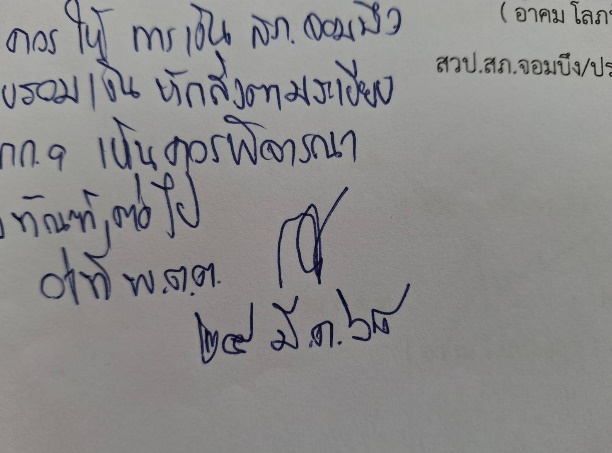 ( อาคม โลภ
สวป.สภ.จอมบึง/ปร
ควร ให้ การเงิน สภ.จอมบึง
บรวมเงิน หักส่งตามระเบียบ
กก.๑ เห็นควรพิจารณา
ทัณฑ์ ต่อไป
ว่าที่ พ.ต.ต.
๒๕ มี.ค. ๖๘